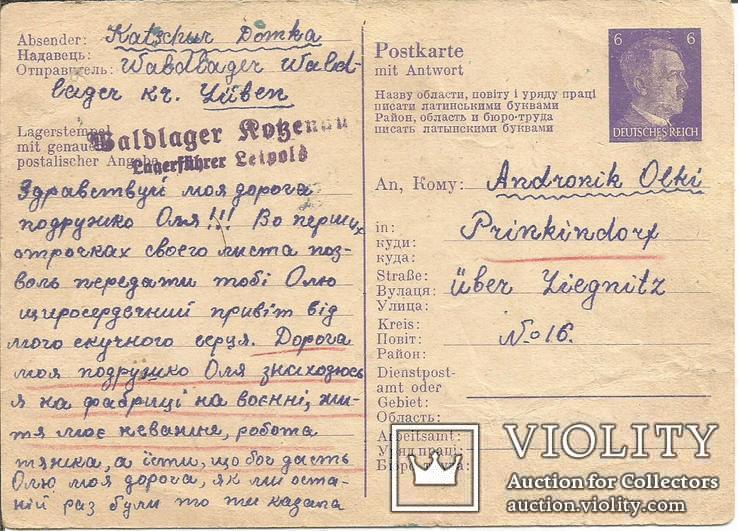 Absender: Katschur Domka
Надавець:
Отправитель: Waldlager Wald-
lager kr. Lüben
Lagerstempel
mit genauer
postalischer Angabe
Waldlager Kotzenau
Lagerführer Leipold
Здравствуй моя дорога
подружко Оля!!! Во перших
строчках своего листа поз-
воль передати тобі Олю
щиросердечний привіт від
мого скучного серця. Дорога
моя подружко Оля знаходюсь
я на фабриці на воєнні, жи-
тя моє неважня, робота
тяжка, а їсти, що бог дасть
Олю моя дорога, як ми оста-
ній раз були то ти казала
Postkarte
mit Antwort
Назву области, повіту і уряду праці
писати латинськими буквами
Район, область и бюро-труда
писать латынскими буквами
6 6
DEUTSCHES REICH
An, Кому: Andronik Olki
in:
куди:
куда:
Prinkindorf
Straße:
Вулаця:
Улица:
über Liegnitz
Kreis:
Повіт:
Район:
No 16.
Dienstpost-
amt oder
Gebiet:
Область:
Arbeitsamt:
Уряд праці:
Бюро труда:
VIOLITY
Auction for Collectors
auction.violity.com